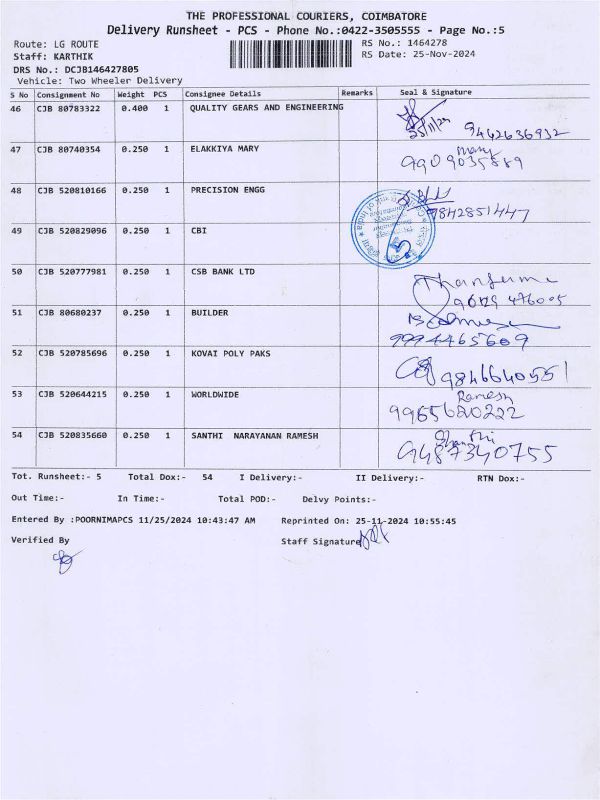 THE PROFESSIONAL COURIERS, COIMBATORE
Delivery Runsheet - PCS - Phone No.:0422-3505555 - Page No.:5
Route: LG ROUTE RS No.: 1464278
Staff: KARTHIK RS Date: 25-Nov-2024
DRS No.: DCJB146427805
Vehicle: Two Wheeler Delivery
S No Consignment No Weight PCS Consignee Details Remarks Seal & Signature
46 CJB 80783322 0.400 1 QUALITY GEARS AND ENGINEERING
25/11/24 9442636932
47 CJB 80740354 0.250 1 ELAKKIYA MARY Mary
9909035889
48 CJB 520810166 0.250 1 PRECISION ENGG
9842851447
49 CJB 520829096 0.250 1 CBI
50 CJB 520777981 0.250 1 CSB BANK LTD
476005
51 CJB 80680237 0.250 1 BUILDER
9994465609
52 CJB 520785696 0.250 1 KOVAI POLY PAKS
9846640551
53 CJB 520644215 0.250 1 WORLDWIDE Ramesh
9965620222
54 CJB 520835660 0.250 1 SANTHI NARAYANAN RAMESH Shanthi
9487340755
Tot. Runsheet:- 5 Total Dox:- 54 I Delivery:- II Delivery:- RTN Dox:-
Out Time:- In Time:- Total POD:- Delvy Points:-
Entered By :POORNIMAPCS 11/25/2024 10:43:47 AM Reprinted On: 25-11-2024 10:55:45
Verified By Staff Signature